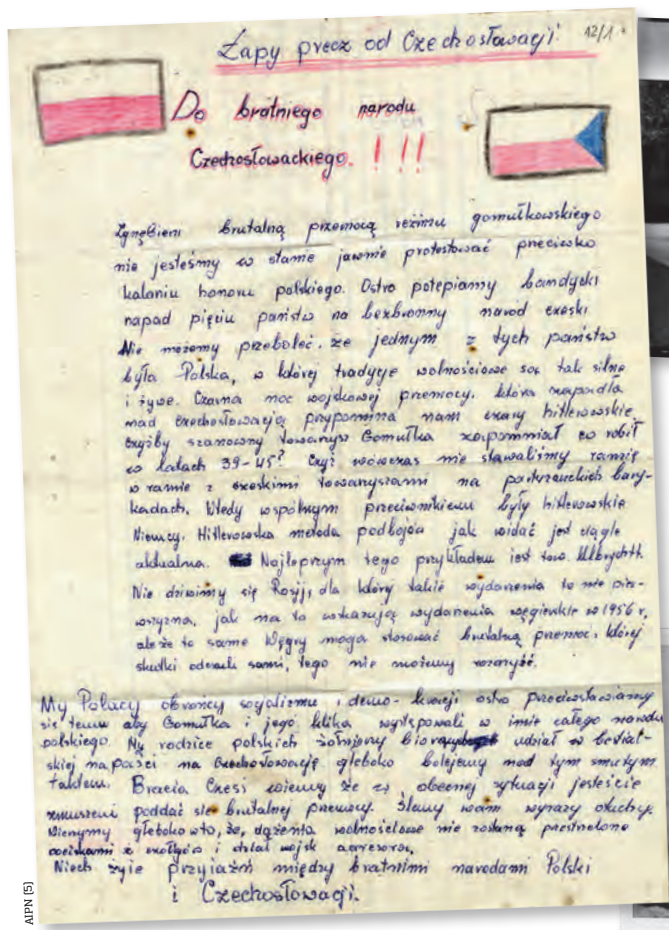 Łapy precz od Czechosłowacji
12/1
Do bratniego narodu
Czechosłowackiego. !!!
Zgnębieni brutalną przemocą reżimu gomułkowskiego
nie jesteśmy w stanie jawnie protestować przeciwko
kalaniu honoru polskiego. Ostro potępiamy bandycki
napad pięciu państw na bezbronny naród czeski
Nie możemy przeboleć, że jednym z tych państw
była Polska, w której tradycje wolnościowe są tak silne
i żywe. Czarna noc wojskowej przemocy, która zapadła
nad Czechosłowacją przypomina nam czasy hitlerowskie
czyżby szanowny towarzysz Gomułka zapomniał co robił
w latach 39-45? Czyż wówczas nie stawaliśmy ramię
w ramię z czeskimi towarzyszami na partyzanckich bary-
kadach. Wtedy wspólnym przeciwnikiem były hitlerowskie
Niemcy. Hitlerowska metoda podbojów jak widać jest ciągle
aktualna. Najlepszym tego przykładem jest tow. Ulbrychth
Nie dziwimy się Rosji, dla której takie wydarzenia to nie pier-
wszyzna, jak na to wskazują wydarzenia węgierskie w 1956 r,
ale że te same Węgry mogą stosować brutalną przemoc, której
skutki odczuli sami, tego nie możemy
My Polacy obrońcy socjalizmu i demo-kracji ostro przeciwstawiamy
się temu aby Gomułka i jego klika występowali w imię całego narodu
polskiego. My rodzice polskich żołnierzy biorących udział w bestial-
skiej napaści na Czechosłowację głęboko bolejemy nad tym smutnym
faktem. Bracia Czesi wiemy że w obecnej sytuacji jesteście
zmuszeni poddać się brutalnej przemocy. Ślemy wam wyrazy otuchy.
Wierzymy głęboko w to, że, dążenia wolnościowe nie zostaną przestrzelone
pociskami z czołgów i dział wojsk agresorów.
Niech żyje przyjaźń między bratnimi narodami Polski
i Czechosłowacji.
AIPN (5)